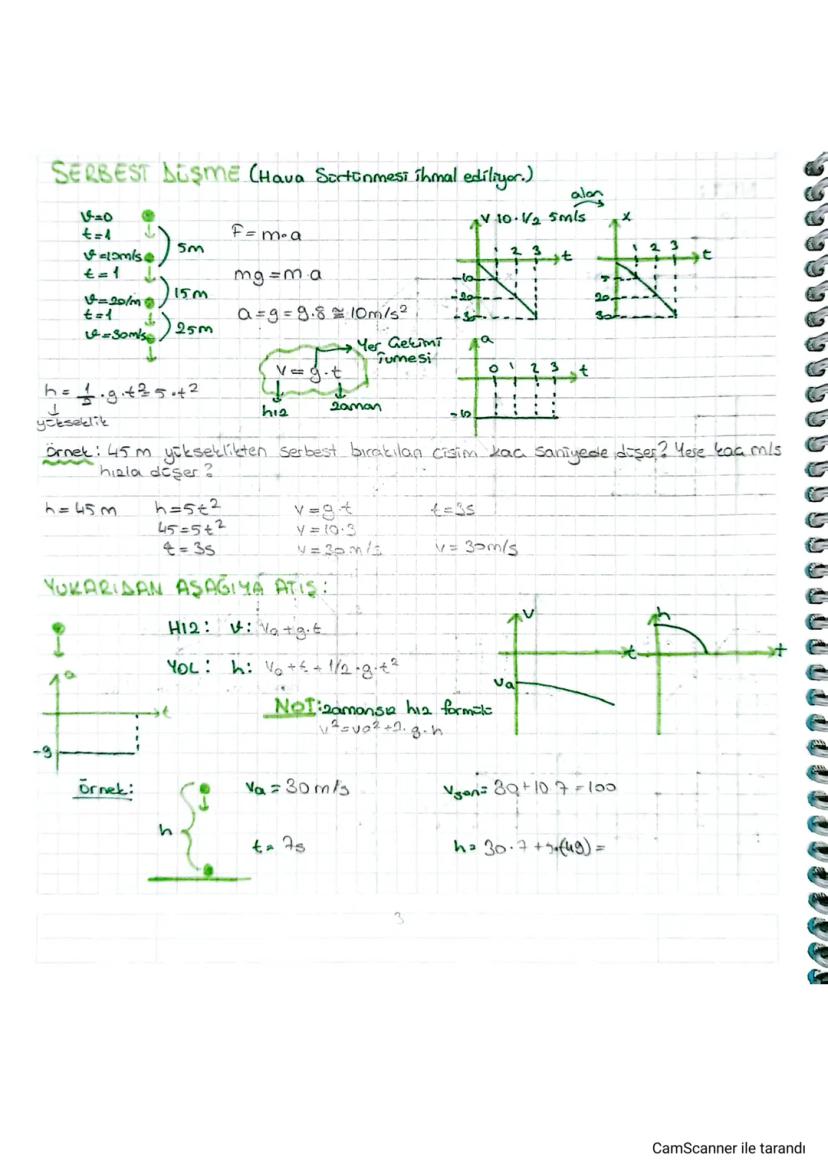 SERBEST DÜŞME (Hava Sürtünmesi ihmal ediliyor.)
v=0
t=1
v=10m/s
t=1
v=20/m
t=1
v=30m/s
5m
15m
25m
F=m.a
mg=m.a
a=g=9.8≅10m/s²
v=g.t
Yer Çekimi
hız
zaman
alan
V 10.1/2 5m/s
1 2 3 t
-10
-20
x
1 2 3 t
a
0 1 2 3 t
-10
yükseklik
Örnek: 45 m yükseklikten serbest bırakılan cisim kaç saniyede düşer? Yere kaç m/s
hızla düşer?
h=45m
h=5t²
45=5t²
t=3s
v=g.t
v=10.3
v=30m/s
t=3s
v=30m/s
YUKARIDAN AŞAĞIYA ATIŞ:
HIZ: v: V₀+g.t
YOL: h: V₀+t+1/2.g.t²
NOT: zamansız hız formülü
v²=v₀²+2.g.h
a
t
-g
v
t
h
t
Örnek:
h
t=7s
h=30.7+5.(49)=
3
CamScanner ile tarandı